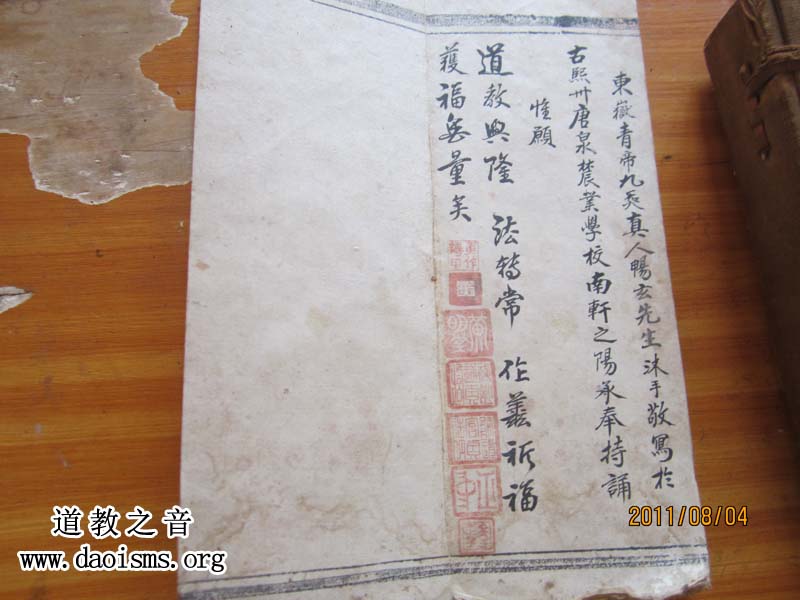 東嶽青帝九炁真人暢玄先生沐手敬寫於
古熙州唐泉農業學校南軒之陽承奉持誦
惟願
道教興隆 法轉常 作善祈福
獲福無量矣
2011/08/04
道教之音
www.daoisms.org